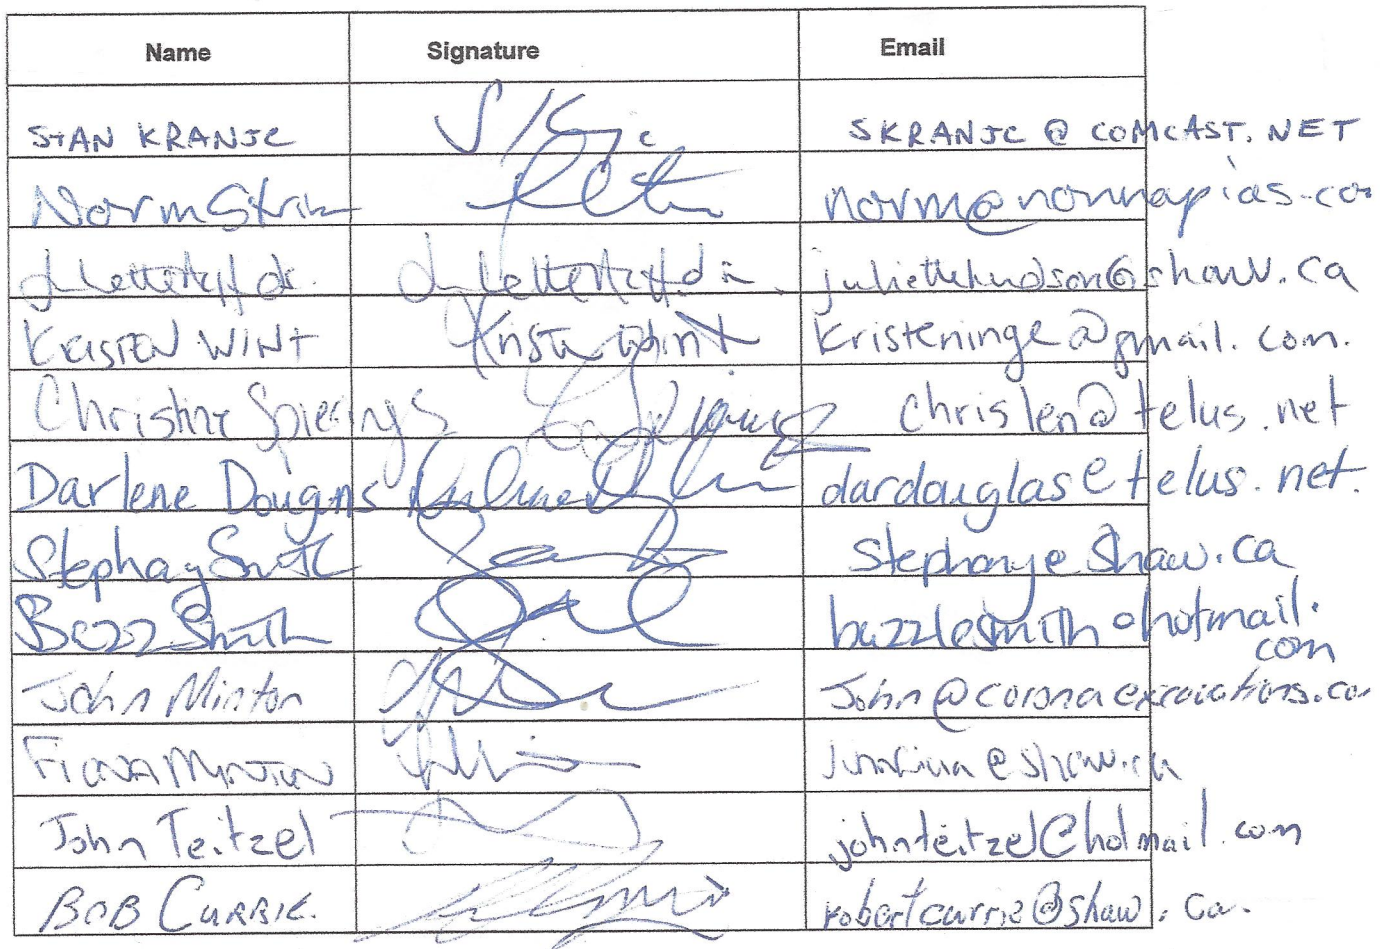 Name Signature Email
STAN KRANJC SKRANJC @ COMCAST.NET
Norm norm@nonnapias.co
juliettehudson@shaw.ca
KRISTEN WINT Kristen Wint kristeninge@gmail.com.
Christine Spierings chrislen@telus.net
Darlene Douglas dardouglas@telus.net.
Stephany Smith stephany@shaw.ca
Buzz Smith buzzlesmith@hotmail.
com
John Minton John@coronaexcavations.co
FIONA MINTON @shaw.ca
John Teitzel johnteitzel@hotmail.com
BOB CURRIE. robertcurrie@shaw.ca.